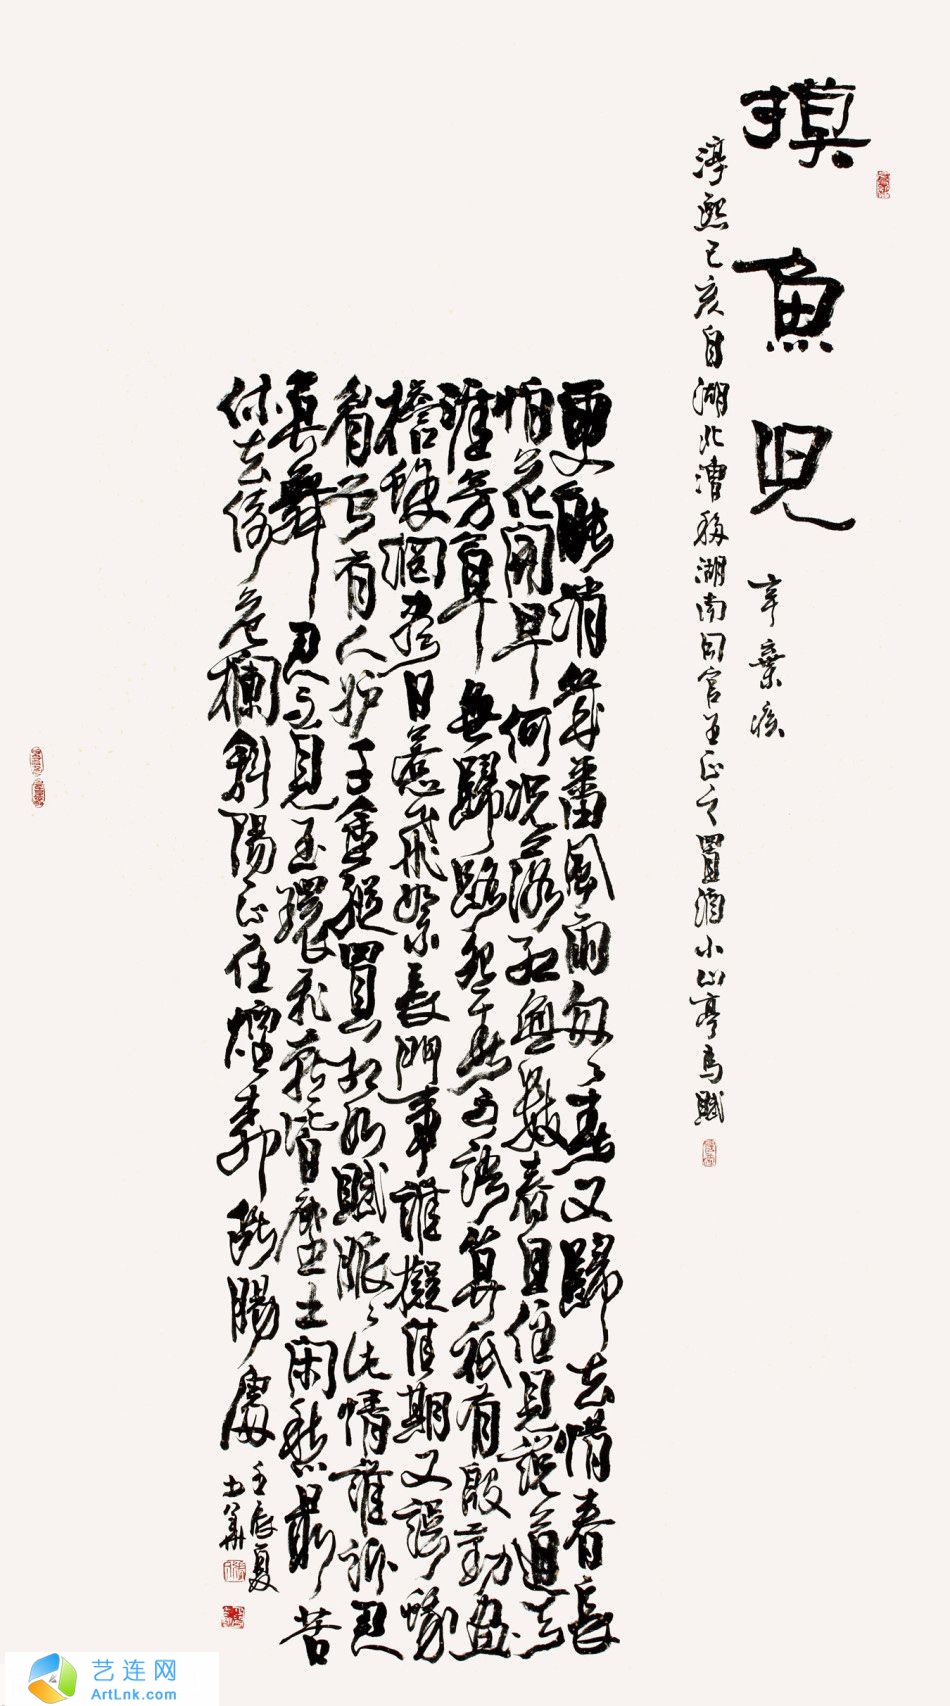 摸魚兒 辛棄疾
淳熙己亥自湖北漕移湖南同官王正之置酒小山亭為賦
更能消幾番風雨匆々春又歸去惜春長
怕花開早何況落紅無數春且住見說道天
涯芳草無歸路怨春不語算祇有殷勤畫
檐蛛網盡日惹飛絮長門事準擬佳期又誤蛾
眉曾有人妒千金縱買相如賦脈々此情誰訴君
莫舞君不見玉環飛燕皆塵土閑愁最苦
休去倚危欄斜陽正在煙柳斷腸處
壬辰夏
艺连网
ArtLnk.com